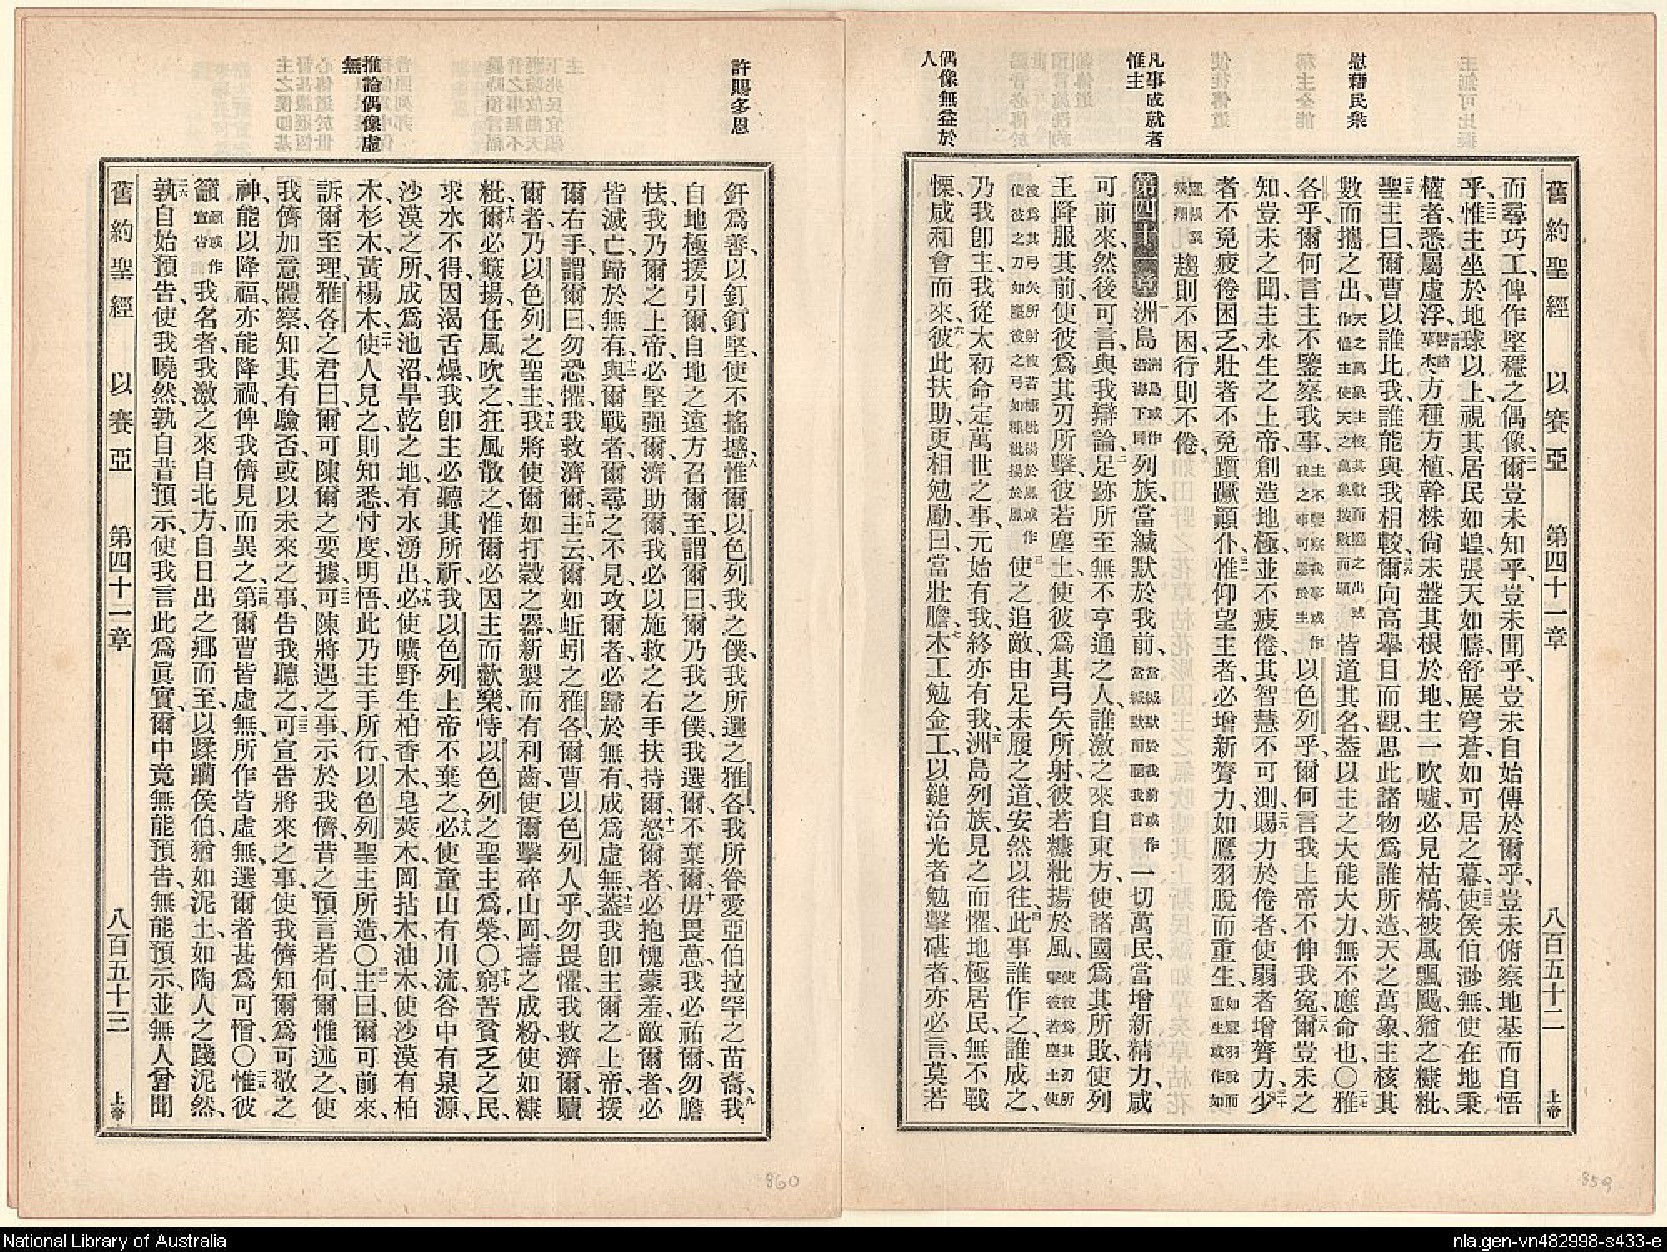 慰藉民衆
凡事成就者
惟主
偶像無益於
人
舊約聖經 以賽亞 第四十一章 八百五十二 上帝
而尋巧工、俾作堅穩之偶像、爾豈未知乎、豈未聞乎、豈未自始傳於爾乎、豈未俯察地基而自悟
乎、惟主坐於地球以上、視其居民如蝗、張天如幬、舒展穹蒼、如可居之幕、使侯伯渺無、使在地秉
權者、悉屬虛浮、草木方種方植、幹株尚未盤其根於地、主一吹噓、必見枯槁、被風飄颺、猶之糠粃、
聖主曰、爾曹以誰比我、誰能與我相較、爾向高舉目而觀、思此諸物爲誰所造、天之萬象、主核其
數而攜之出、皆道其名、蓋以主之大能大力、無不應命也、〇雅
各乎、爾何言主不鑒察我事、以色列乎、爾何言我上帝不伸我寃、爾豈未之
知、豈未之聞、主永生之上帝、創造地極、並不疲倦、其智慧不可測、賜力於倦者、使弱者增膂力、少
者不免疲倦困乏、壯者不免顚蹶顚仆、惟仰望主者、必增新膂力、如鷹羽脫而重生、
趨則不困、行則不倦、
第四十一章 洲島列族、當緘默於我前、一切萬民、當增新精力、咸
可前來、然後可言、與我辯論、足跡所至、無不亨通之人、誰激之來自東方、使諸國爲其所敗、使列
王降服其前、使彼爲其刃所擊、彼若塵土、使彼爲其弓矢所射、彼若糠粃揚於風、
使之追敵、由足未履之道、安然以往、此事誰作之、誰成之、
乃我卽主、我從太初命定萬世之事、元始有我、終亦有我、洲島列族、見之而懼、地極居民、無不戰
慄、咸和會而來、彼此扶助、更相勉勵曰、當壯膽、木工勉金工、以鎚治光者、勉擊碪者、亦必言、莫若
859
許賜多恩
推諭偶像虛
無
釬爲善、以釘釘堅、使不搖撼、惟爾以色列我之僕、我所選之雅各、我所眷愛亞伯拉罕之苗裔、我
自地極援引爾、自地之遠方召爾至、謂爾曰、爾乃我之僕、我選爾、不棄爾、毋畏葸、我必祐爾、勿膽
怯、我乃爾之上帝、必堅强爾、濟助爾、我必以施救之右手扶持爾、怒爾者、必抱愧蒙羞、敵爾者、必
皆滅亡、歸於無有、與爾戰者、爾尋之不見、攻爾者、必歸於無有、成爲虛無、蓋我卽主爾之上帝、援
爾右手、謂爾曰、勿恐懼、我救濟爾、主云、爾如蚯蚓之雅各、爾曹以色列人乎、勿畏懼、我救濟爾、贖
爾者、乃以色列之聖主、我將使爾如打穀之器、新製而有利齒、使爾擊碎山岡、擣之成粉、使如糠
粃、爾必簸揚、任風吹之、狂風散之、惟爾必因主而歡樂、恃以色列之聖主爲榮、〇窮苦貧乏之民、
求水不得、因渴舌燥、我卽主必聽其所祈、我以色列上帝不棄之、必使童山有川流、谷中有泉源、
沙漠之所、成爲池沼、旱乾之地、有水湧出、必使曠野生柏香木、皂莢木、岡拈木、油木、使沙漠有柏
木、杉木、黃楊木、使人見之、則知悉忖度明悟、此乃主手所行、以色列聖主所造、〇主曰、爾可前來、
訴爾至理、雅各之君曰、爾可陳爾之要據、可陳將遇之事、示於我儕、昔之預言若何、爾惟述之、使
我儕加意體察、知其有驗否、或以未來之事、告我聽之、可宣告將來之事、使我儕知爾爲可敬之
神、能以降福、亦能降禍、俾我儕見而異之、第爾曹皆虛無、所作皆虛無、選爾者甚爲可憎、〇惟彼
籲我名者、我激之來自北方、自日出之鄉而至、以蹂躪侯伯、猶如泥土、如陶人之踐泥然、
孰自始預告、使我曉然、孰自昔預示、使我言此爲眞實、爾中竟無能預告、無能預示、並無人曾聞
舊約聖經 以賽亞 第四十一章 八百五十三 上帝
860
National Library of Australia
nla.gen-vn482998-s433-e